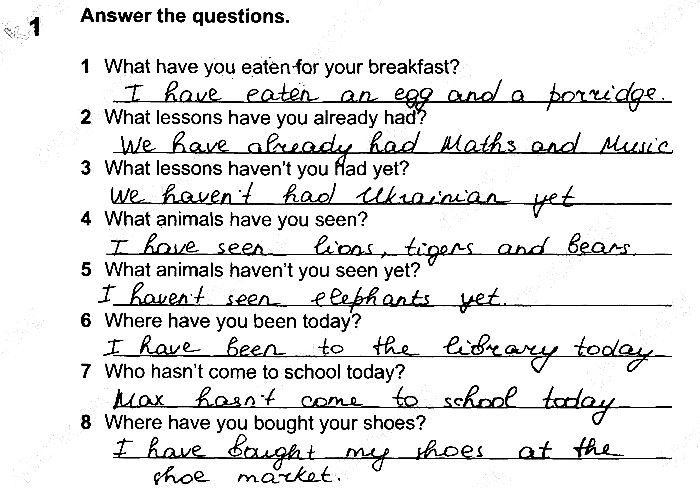 1 Answer the questions.
1 What have you eaten for your breakfast?
I have eaten an egg and a porridge.
2 What lessons have you already had?
We have already had Maths and Music
3 What lessons haven't you had yet?
We haven't had Ukrainian yet
4 What animals have you seen?
I have seen lions, tigers and bears.
5 What animals haven't you seen yet?
I haven't seen elephants yet.
6 Where have you been today?
I have been to the library today
7 Who hasn't come to school today?
Max hasn't come to school today
8 Where have you bought your shoes?
I have bought my shoes at the
shoe market.